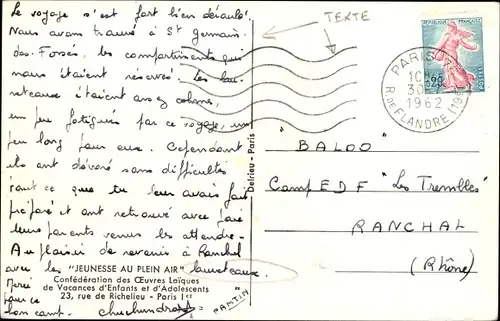 Le voyage s'est fort bien déroulé.
Nous avons trouvé à St Germain
des Fossés, les compartiments qui
nous étaient réservés. Les lou-
veteaux étaient assez calmes,
un peu fatigués par ce voyage, un
peu long pour eux. Cependant
ils ont dévoré sans difficultés
tout ce que tu leur avais fait
préparé et ont retrouvé avec joie
leurs parents venus les attendre.
Au plaisir de revenir à Ranchal
avec les louveteaux.
Merci
pour ce
bon camp.
"JEUNESSE AU PLEIN AIR"
Confédération des Œuvres Laïques
de Vacances d'Enfants et d'Adolescents
23, rue de Richelieu - Paris 1er
PANTIN
Delrieu - Paris
TEXTE
REPUBLIQUE FRANÇAISE
POSTES
PARIS
10H45
30-7
1962
R. DE FLANDRE (19e)
"BALOO"
Camp EDF "Les Trembles"
RANCHAL
(Rhône)